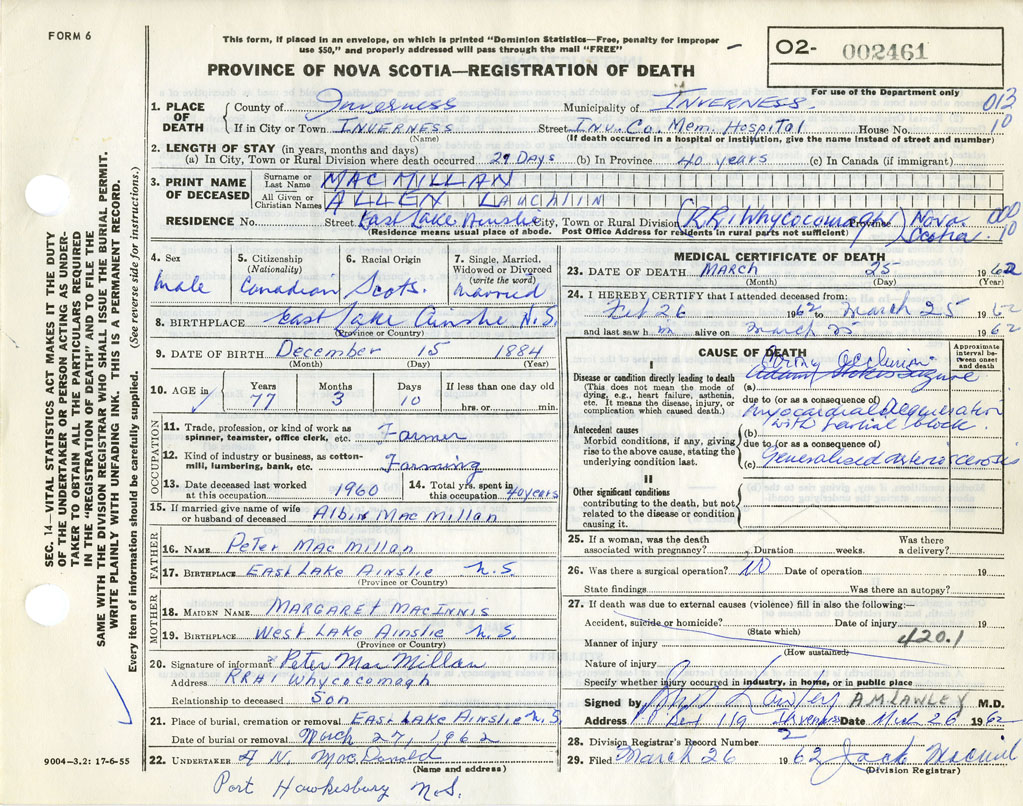 FORM 6
This form, if placed in an envelope, on which is printed "Dominion Statistics—Free, penalty for improper
use $50," and properly addressed will pass through the mail "FREE"
O2- 002461
PROVINCE OF NOVA SCOTIA—REGISTRATION OF DEATH
For use of the Department only
1. PLACE OF DEATH
County of Inverness Municipality of INVERNESS. 013
If in City or Town INVERNESS Street Inv. Co. Mem. Hospital House No. 10
(Name) (If death occurred in a hospital or institution, give the name instead of street and number)
2. LENGTH OF STAY (in years, months and days)
(a) In City, Town or Rural Division where death occurred 29 Days (b) In Province 40 years (c) In Canada (if immigrant)
3. PRINT NAME OF DECEASED
Surname or Last Name MACMILLAN
All Given or Christian Names ALLEN LAUCHLIN
RESIDENCE No. Street East Lake Ainslie City, Town or Rural Division (RR1 Whycocomagh) Province Nova Scotia 000 10
(Residence means usual place of abode. Post Office Address for residents in rural parts not sufficient)
4. Sex
Male
5. Citizenship (Nationality)
Canadian
6. Racial Origin
Scots.
7. Single, Married, Widowed or Divorced (write the word)
Married
8. BIRTHPLACE East Lake Ainslie N.S.
(Province or Country)
9. DATE OF BIRTH December 15 1884
(Month) (Day) (Year)
10. AGE in Years 77 Months 3 Days 10 If less than one day old
hrs. or min.
OCCUPATION
11. Trade, profession, or kind of work as spinner, teamster, office clerk, etc. Farmer
12. Kind of industry or business, as cotton-mill, lumbering, bank, etc. Farming
13. Date deceased last worked at this occupation 1960
14. Total yrs. spent in this occupation 40 years
15. If married give name of wife or husband of deceased Albin MacMillan
FATHER
16. NAME Peter MacMillan
17. BIRTHPLACE EAST LAKE AINSLIE N.S.
(Province or Country)
MOTHER
18. MAIDEN NAME MARGARET MACINNIS
19. BIRTHPLACE West LAKE AINSLIE N.S.
(Province or Country)
20. Signature of informant Peter MacMillan
Address RR#1 Whycocomagh
Relationship to deceased Son
21. Place of burial, cremation or removal EAST LAKE AINSLIE N.S.
Date of burial or removal March 27, 1962
22. UNDERTAKER A N. MacDonald
(Name and address)
Port Hawkesbury N.S.
MEDICAL CERTIFICATE OF DEATH
23. DATE OF DEATH MARCH 25 1962
(Month) (Day) (Year)
24. I HEREBY CERTIFY that I attended deceased from:
Feb 26 1962 to March 25 1962
and last saw him alive on March 25 1962
CAUSE OF DEATH
Approximate interval between onset and death
I
Disease or condition directly leading to death
(This does not mean the mode of dying, e.g., heart failure, asthenia, etc. It means the disease, injury, or complication which caused death.)
(a) Occlusion
due to (or as a consequence of)
Myocardial Degeneration
Antecedent causes
Morbid conditions, if any, giving rise to the above cause, stating the underlying condition last.
(b) with partial block.
due to (or as a consequence of)
(c) Generalised arteriosclerosis
II
Other significant conditions
contributing to the death, but not related to the disease or condition causing it.
25. If a woman, was the death associated with pregnancy? Duration weeks. Was there a delivery?
26. Was there a surgical operation? No Date of operation 19
State findings Was there an autopsy?
27. If death was due to external causes (violence) fill in also the following:—
Accident, suicide or homicide? Date of injury 19
(State which)
420.1
Manner of injury
(How sustained)
Nature of injury
Specify whether injury occurred in industry, in home, or in public place
Signed by A.M. LAWLEY M.D.
Address Box 119 Inverness Date Mch 26 1962
28. Division Registrar's Record Number 2
29. Filed March 26 1962 Jack
(Division Registrar)
9004—3.2: 17-6-55
SEC. 14—VITAL STATISTICS ACT MAKES IT THE DUTY
OF THE UNDERTAKER OR PERSON ACTING AS UNDER-
TAKER TO OBTAIN ALL THE PARTICULARS REQUIRED
IN THE "REGISTRATION OF DEATH" AND TO FILE THE
SAME WITH THE DIVISION REGISTRAR WHO SHALL ISSUE THE BURIAL PERMIT.
WRITE PLAINLY WITH UNFADING INK. THIS IS A PERMANENT RECORD.
Every item of information should be carefully supplied. (See reverse side for instructions.)